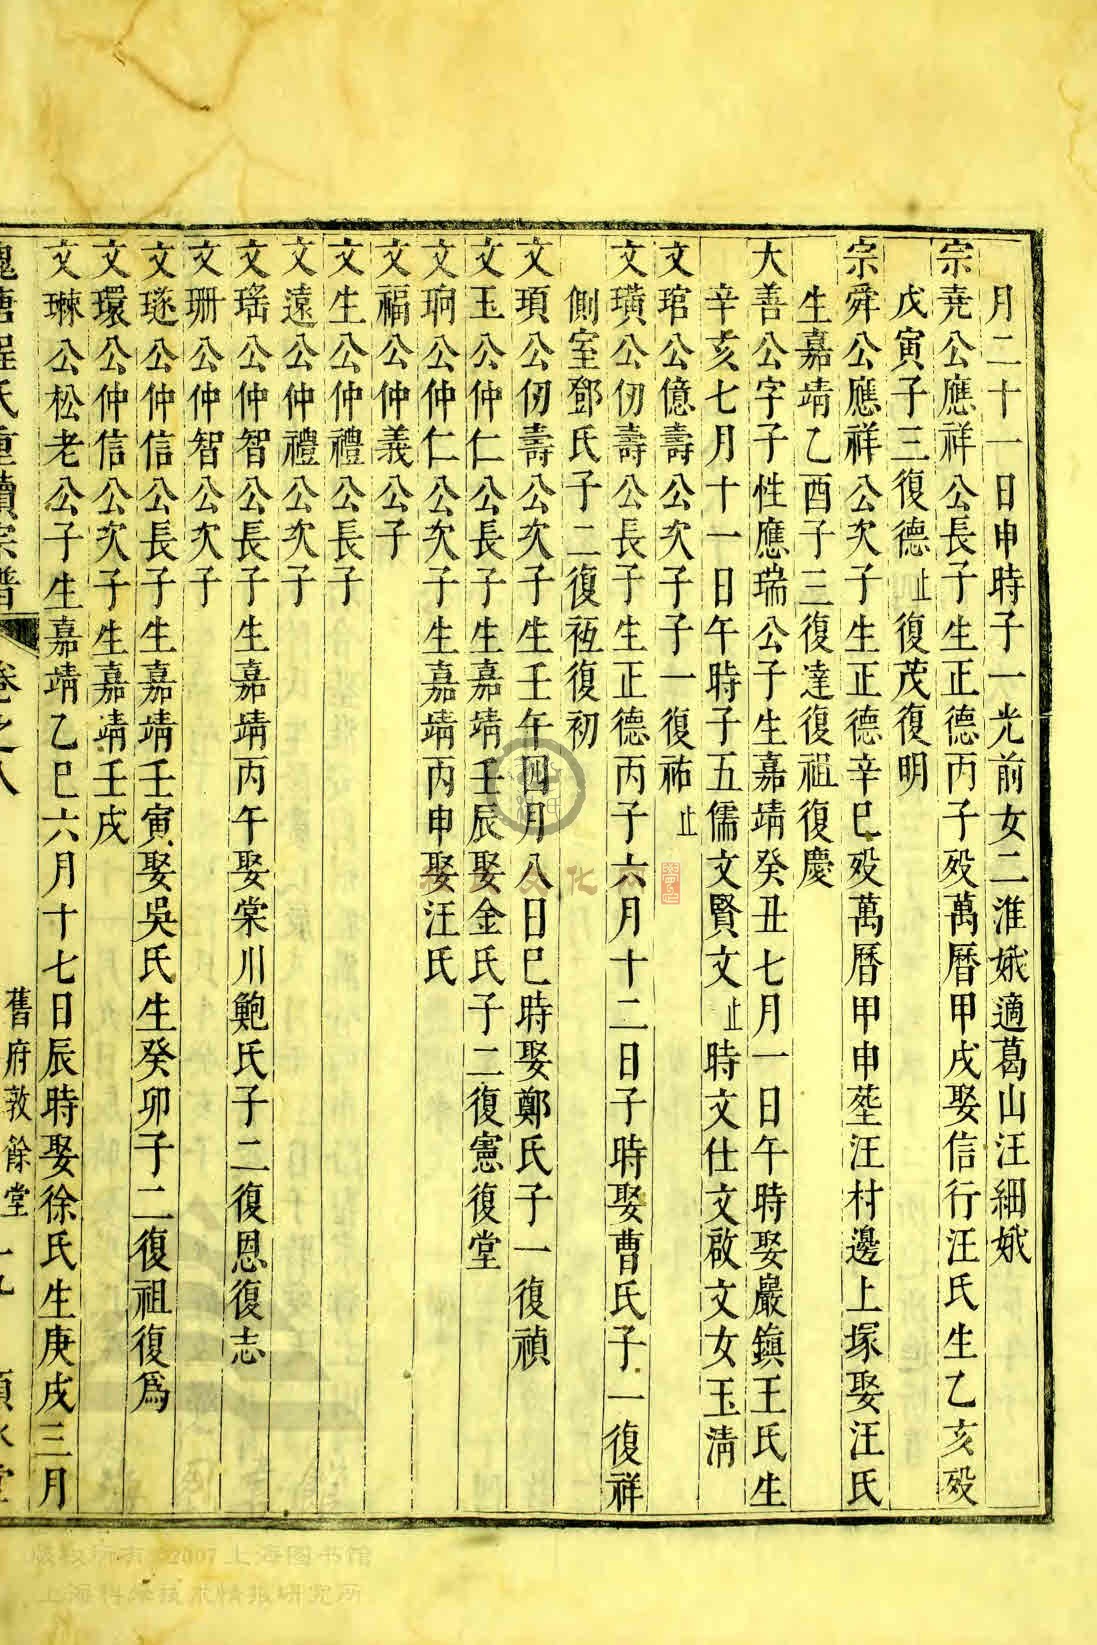 月二十一日申時子一光前女二淮娥適葛山汪細娥
宗堯公應祥公長子生正德丙子歿萬曆甲戌娶信行汪氏生乙亥歿
戊寅子三復德止復茂復明
宗舜公應祥公次子生正德辛巳歿萬曆甲申塟汪村邊上塚娶汪氏
生嘉靖乙酉子三復達復祖復慶
大善公字子性應瑞公子生嘉靖癸丑七月一日午時娶巖鎮王氏生
辛亥七月十一日午時子五儒文賢文止時文仕文啟文女玉清
文琯公億壽公次子子一復祐止
文璜公仞壽公長子生正德丙子六月十二日子時娶曹氏子一復祥
側室鄧氏子二復初
文項公仞壽公次子生壬午四月八日巳時娶鄭氏子一復禎
文玉公仲仁公長子生嘉靖壬辰娶金氏子二復憲復堂
文珦公仲仁公次子生嘉靖丙申娶汪氏
文福公仲義公子
文生公仲禮公長子
文遠公仲禮公次子
文瑤公仲智公長子生嘉靖丙午娶棠川鮑氏子二復恩復志
文珊公仲智公次子
文璲公仲信公長子生嘉靖壬寅娶吳氏生癸卯子二復祖復爲
文環公仲信公次子生嘉靖壬戌
文琳公松老公子生嘉靖乙巳六月十七日辰時娶徐氏生庚戌三月
槐塘程氏重續宗譜 卷之八 舊府敦餘堂
版权所有 ©2007 上海图书馆
上海科学技术情报研究所